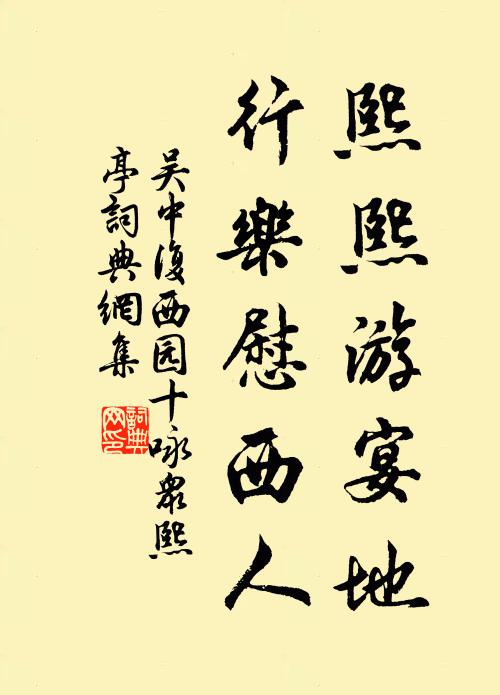 熙熙游宴地
行樂慰西人
吴中復西园十咏衆熙
亭詞典網集
詞典网印